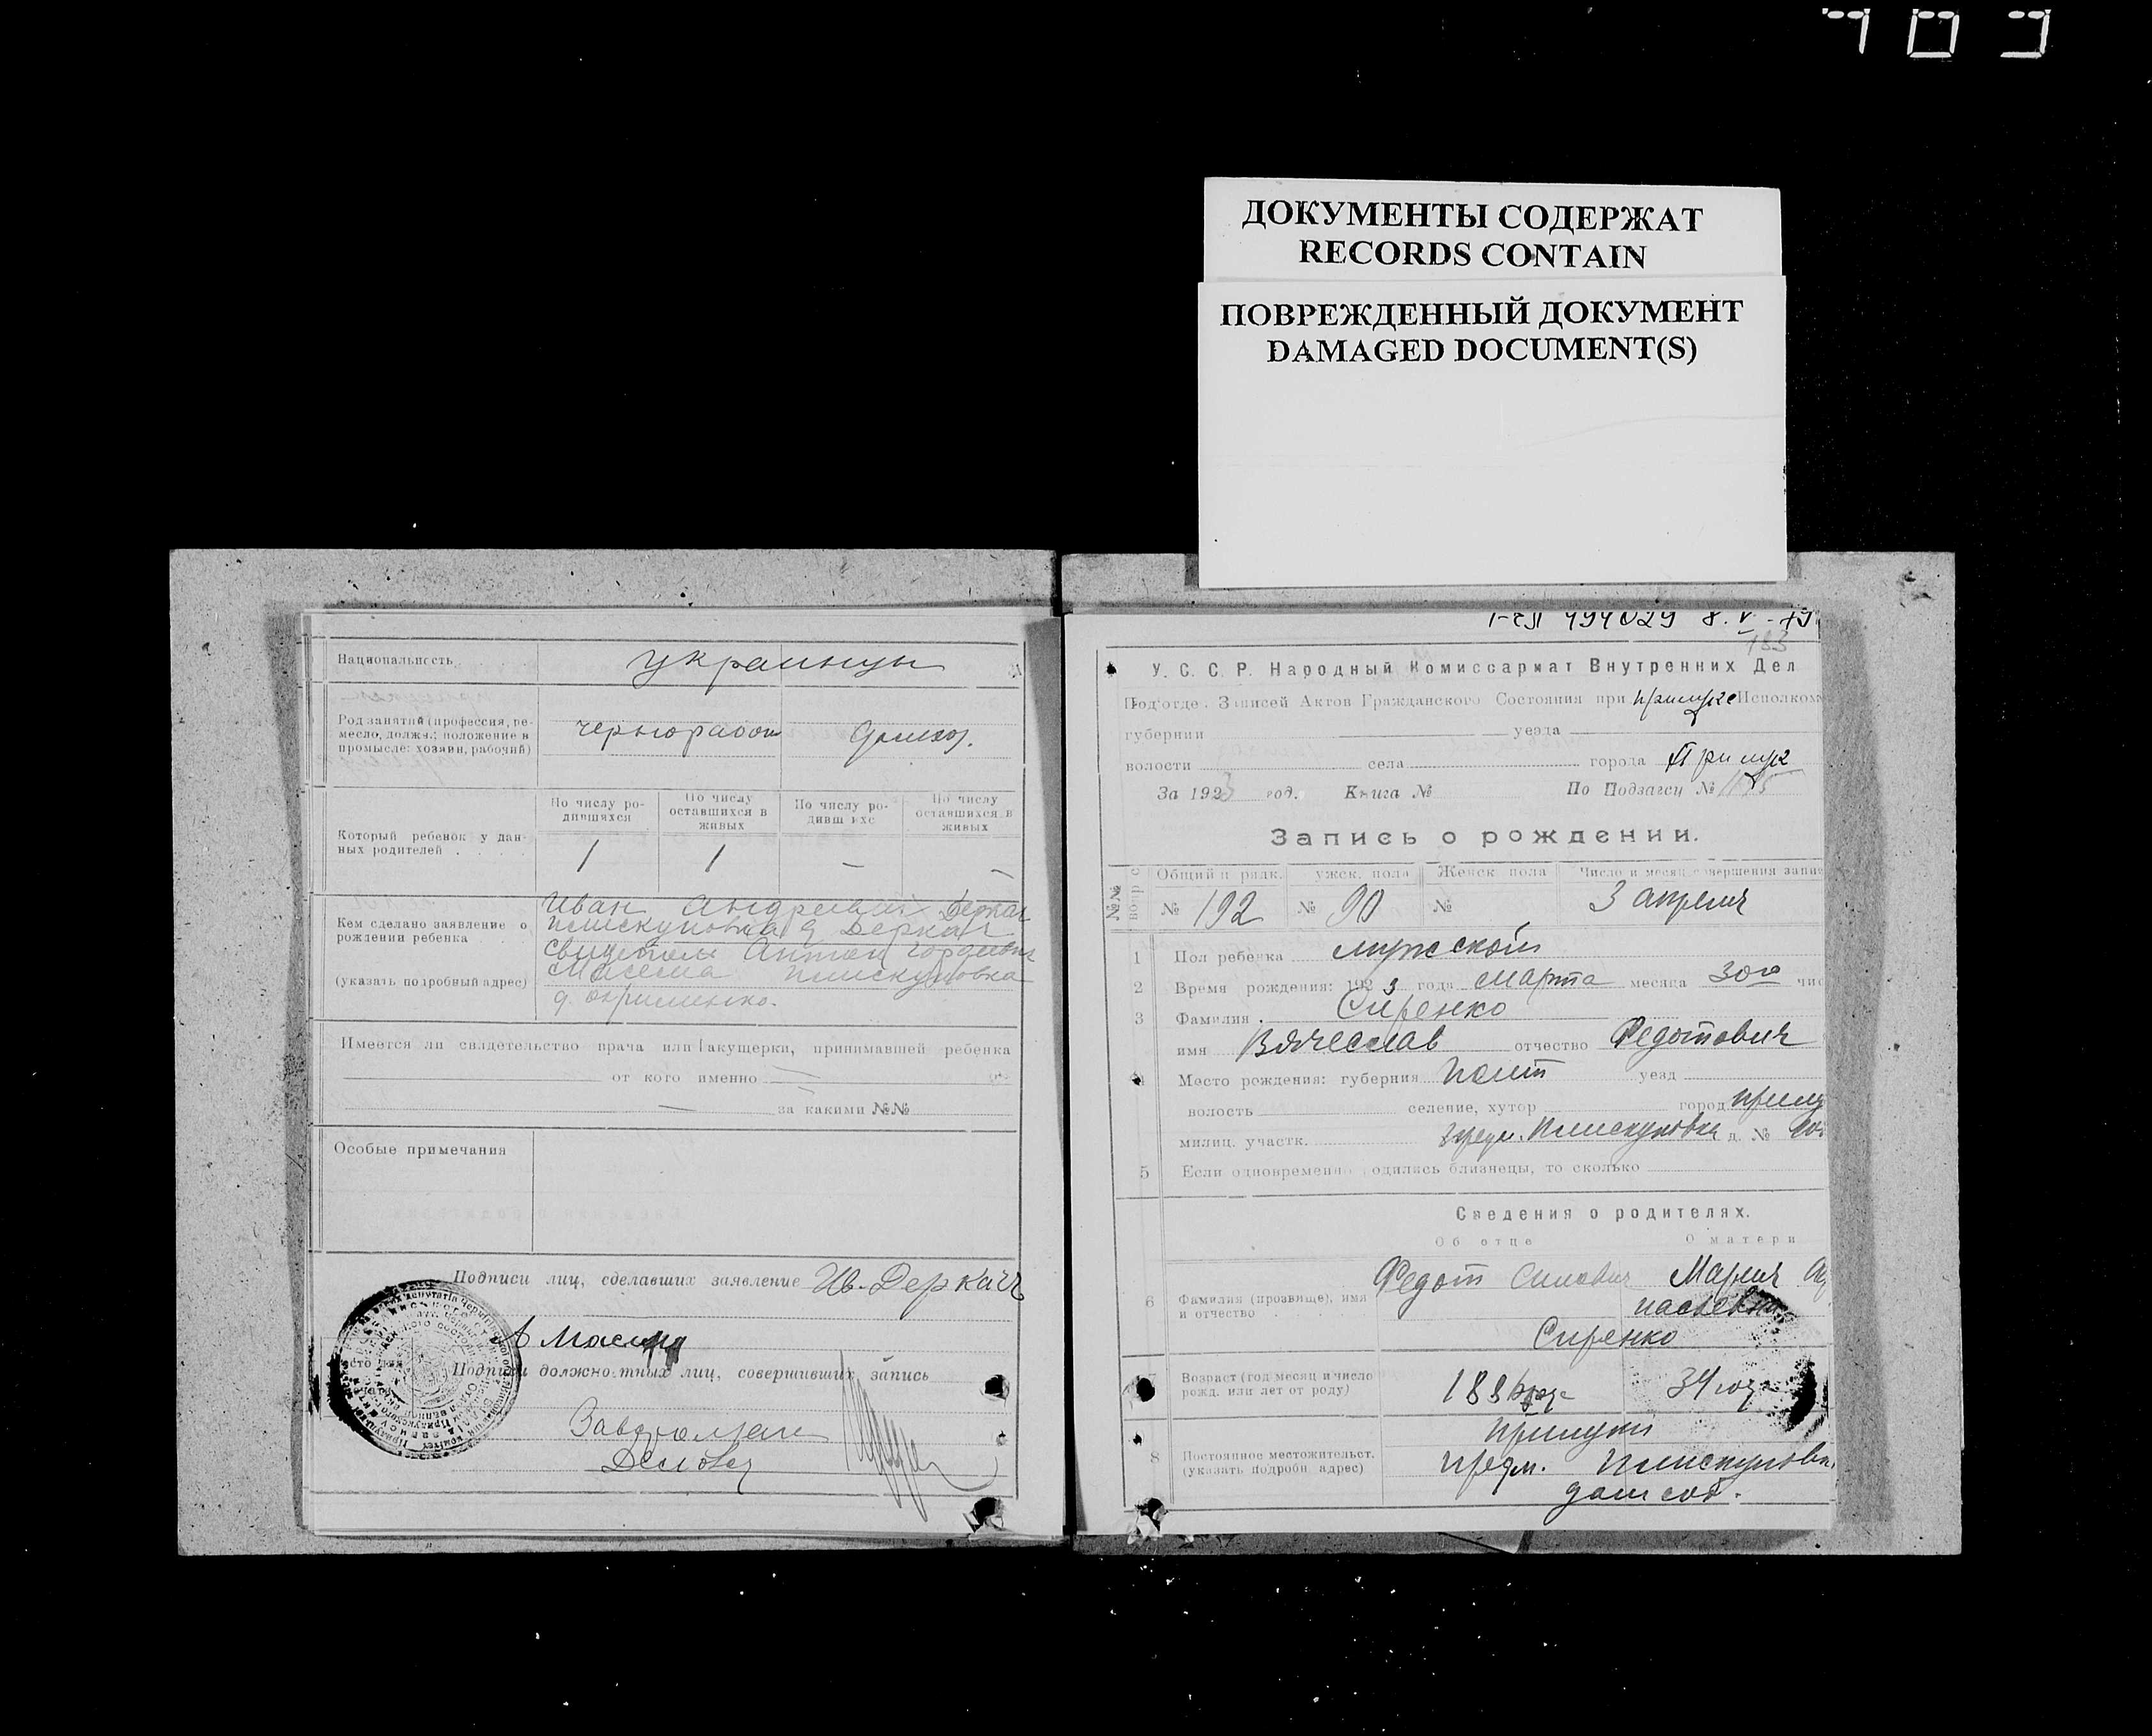 ДОКУМЕНТЫ СОДЕРЖАТ
RECORDS CONTAIN
ПОВРЕЖДЕННЫЙ ДОКУМЕНТ
DAMAGED DOCUMENT(S)
Национальность украинцы
Род занятий (профессия, ре-
месло, должн.; положение в
промысле: хозяин, рабочий)
чернорабоч домхоз.
По числу ро-
дившихся
По числу
оставшихся в
живых
По числу ро-
дивш ихс
По числу
оставшихся в
живых
Который ребенок у дан-
ных родителей
1 1 — —
Кем сделано заявление о
рождении ребенка
(указать подробный адрес)
Иван Андреевич Деркач
Плискуновка д Деркач
свидетель Антон
Плискуновка
Имеется ли свидетельство врача или акушерки, принимавшей ребенка
от кого именно
за какими №№
Особые примечания
Подписи лиц, сделавших заявление Ив. Деркач
Подписи должностных лиц, совершивших запись
494029 8. V - 79
183
У. С. С. Р. Народный Комиссариат Внутренних Дел
Подотдел Записей Актов Гражданского Состояния при Прилукс Исполком
губернии уезда
волости села города Прилук
За 1923 год. Книга № По Подзагсу №
Запись о рождении.
№№
Общий п рядк. ужск. пола Женск пола Число и месяц совершения запис
№ 192 № 90 № 3 апреля
1 Пол ребенка мужской
2 Время рождения: 1923 года марта месяца 30го чис
3 Фамилия Сиренко
имя Вячеслав отчество Федотович
4 Место рождения: губерния Полт уезд
волость селение, хутор город Прилу
милиц. участк. предм. Плискуновка д. №
5 Если одновременно родились близнецы, то сколько
Сведения о родителях.
Об отце О матери
6 Фамилия (прозвище), имя
и отчество
Федот Силович Мария
Сиренко
7 Возраст (год месяц и число
рожд. или лет от роду)
34 года
8 Постоянное местожительст.
(указать подробн адрес)
Прилуки
предм. Плискуновк
дом соб.